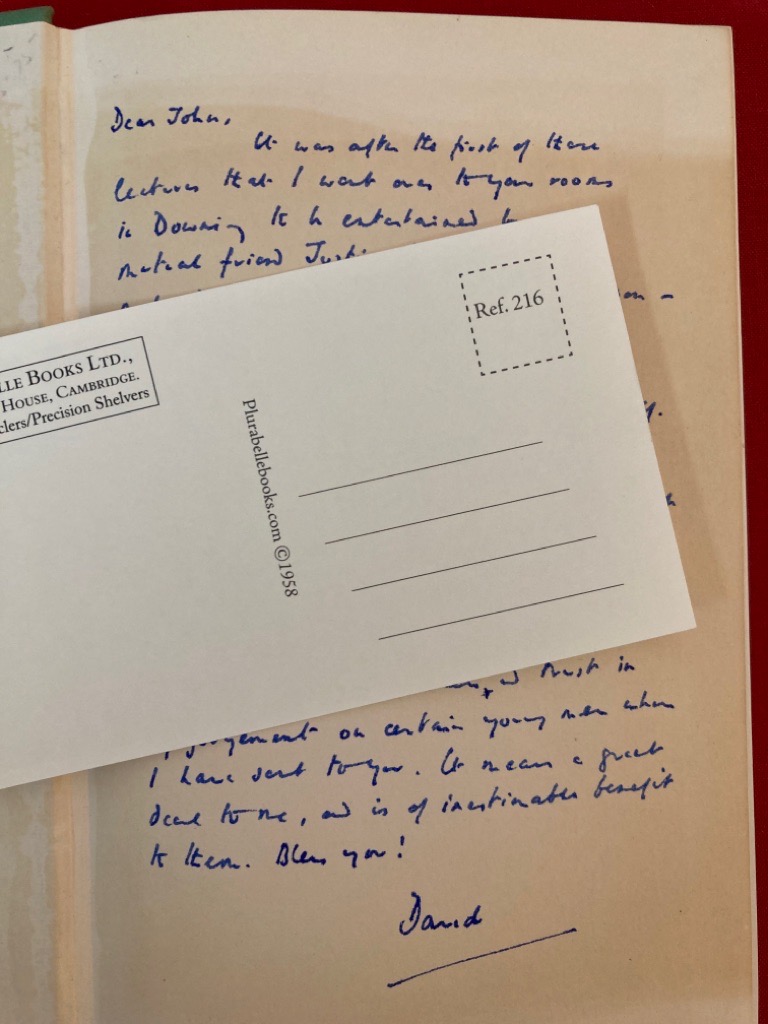 Dear John,
It was after the first of these
lectures that I went over to your rooms
in Downing to be entertained by
mutual friend
Ref. 216
LLE BOOKS LTD.,
HOUSE, CAMBRIDGE.
clers/Precision Shelvers
Plurabellebooks.com ©1958
trust in
judgement on certain young men whom
I have sent to you. It means a great
deal to me, and is of inestimable benefit
to them. Bless you!
David